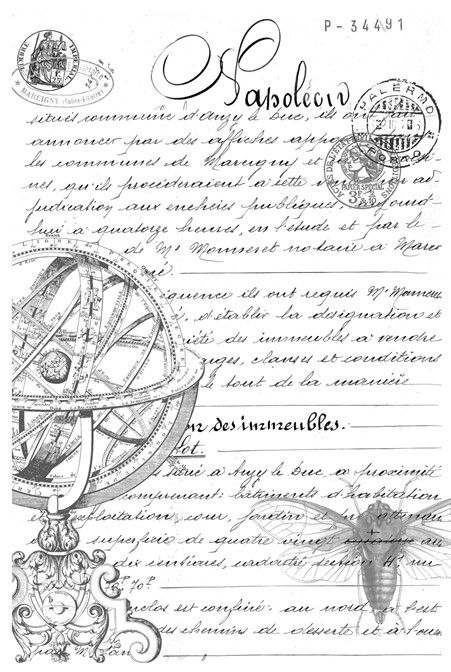 P-34491
TIMBRE IMPERIAL
MARCIGNY (Saône-&-Loire)
Napoléon
PALERMO
PORTO
PAPIER SPECIAL
situés commune d'Anzy le Duc, ils ont fait
annoncer par des affiches apposées
les communes de Marcigny et
nes, qu'ils procéderaient à cette ad
judication aux enchères publiques, aujourd'
hui à quatorze heures, en l'étude et par le
de Me Monseret notaire à Marci
équence ils ont requis Me
d'établir la désignation et
été des immeubles à vendre
arges, clauses et conditions
le tout de la manière
on des immeubles.
lot.
située à Anzy le Duc, à proximité
comprenant: bâtiments d'habitation
exploitation, cour, jardin et
superficie de quatre vingt au
dix centiares, cadastré section
clos est confiné: au nord à l'est
des chemins de desserte et à l'ou
par Mr